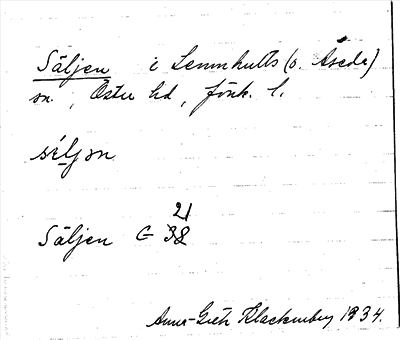 Säljen i Lemnhults (o. Åseda)
sn., Östra hd, Jönk. l.
sèljɔn
Säljen G 38
21
Anna-Greta Klackenberg 1934.